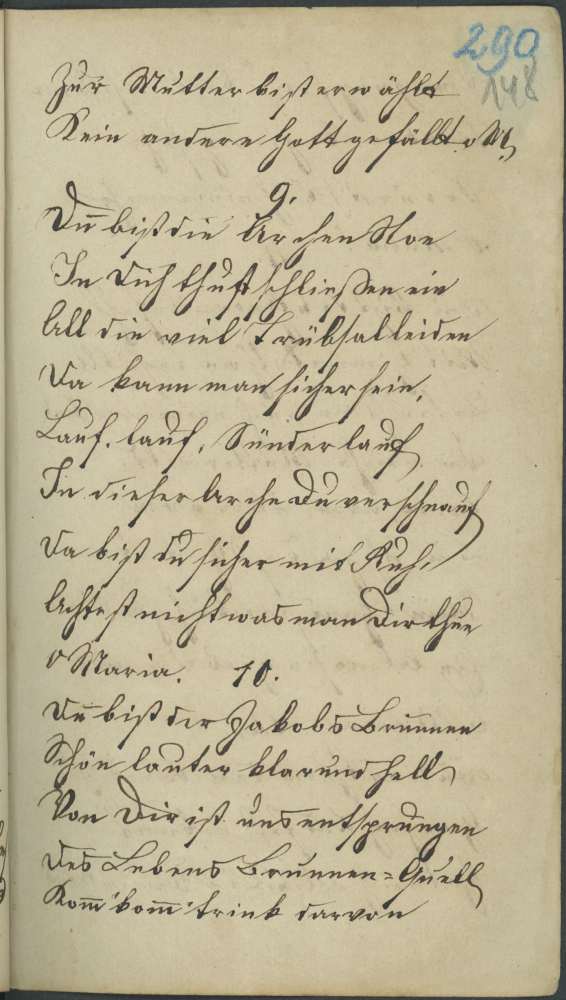 290
148
Zur Mutter bist erwählt
Kein andere Gott gefällt. o M.
9.
Du bist die Archen Noe
In Dich thust schließen ein
All die viel Trübsal leiden
Da kann man sicher sein,
Lauf, lauf, Sünder lauf
In dieser Arche Du verschnauf
Da bist du sicher mit Ruh,
Achtest nicht was man Dir thue
O Maria. 10.
Du bist der Jakobs Brunnen
Schön lauter klar und hell
Von Dir ist uns entsprungen
Des Lebens Brunnen-Quell
Kom̅ kom̅ trink darvon